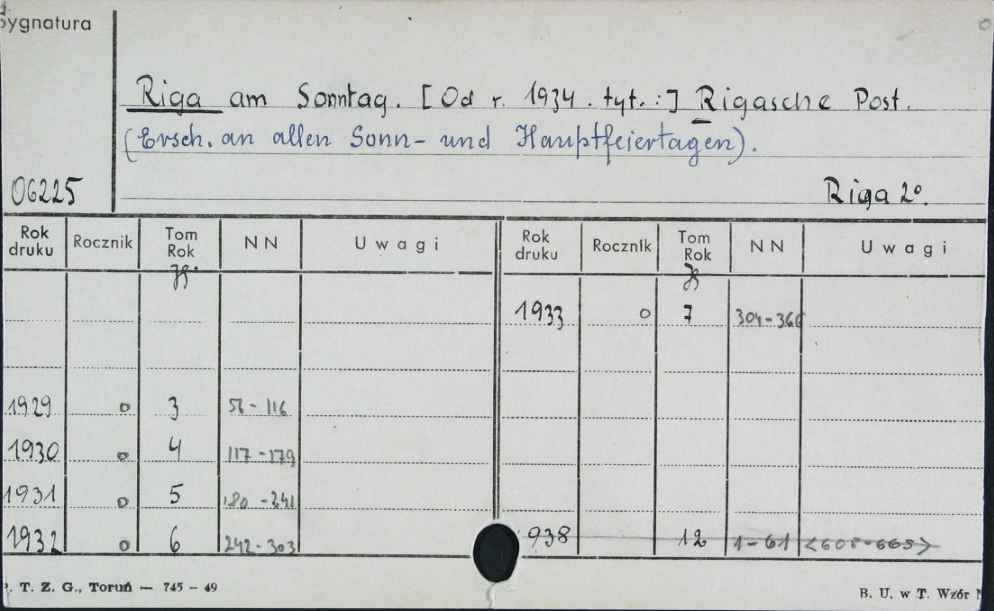 Sygnatura
Riga am Sonntag. [Od r. 1934. tyt.:] Rigasche Post.
(Ersch. an allen Sonn- und Hauptfeiertagen).
06225 Riga 2º.
Rok druku Rocznik Tom Rok NN Uwagi Rok druku Rocznik Tom Rok NN Uwagi
Jg. Jg
1933 o 7 304-366
1929 o 3 56-116
1930 o 4 117-179
1931 o 5 180-241
1932 o 6 242-303 938 12 1-61 <608-669>
T. Z. G., Toruń — 745 – 49 B. U. w T. Wzór